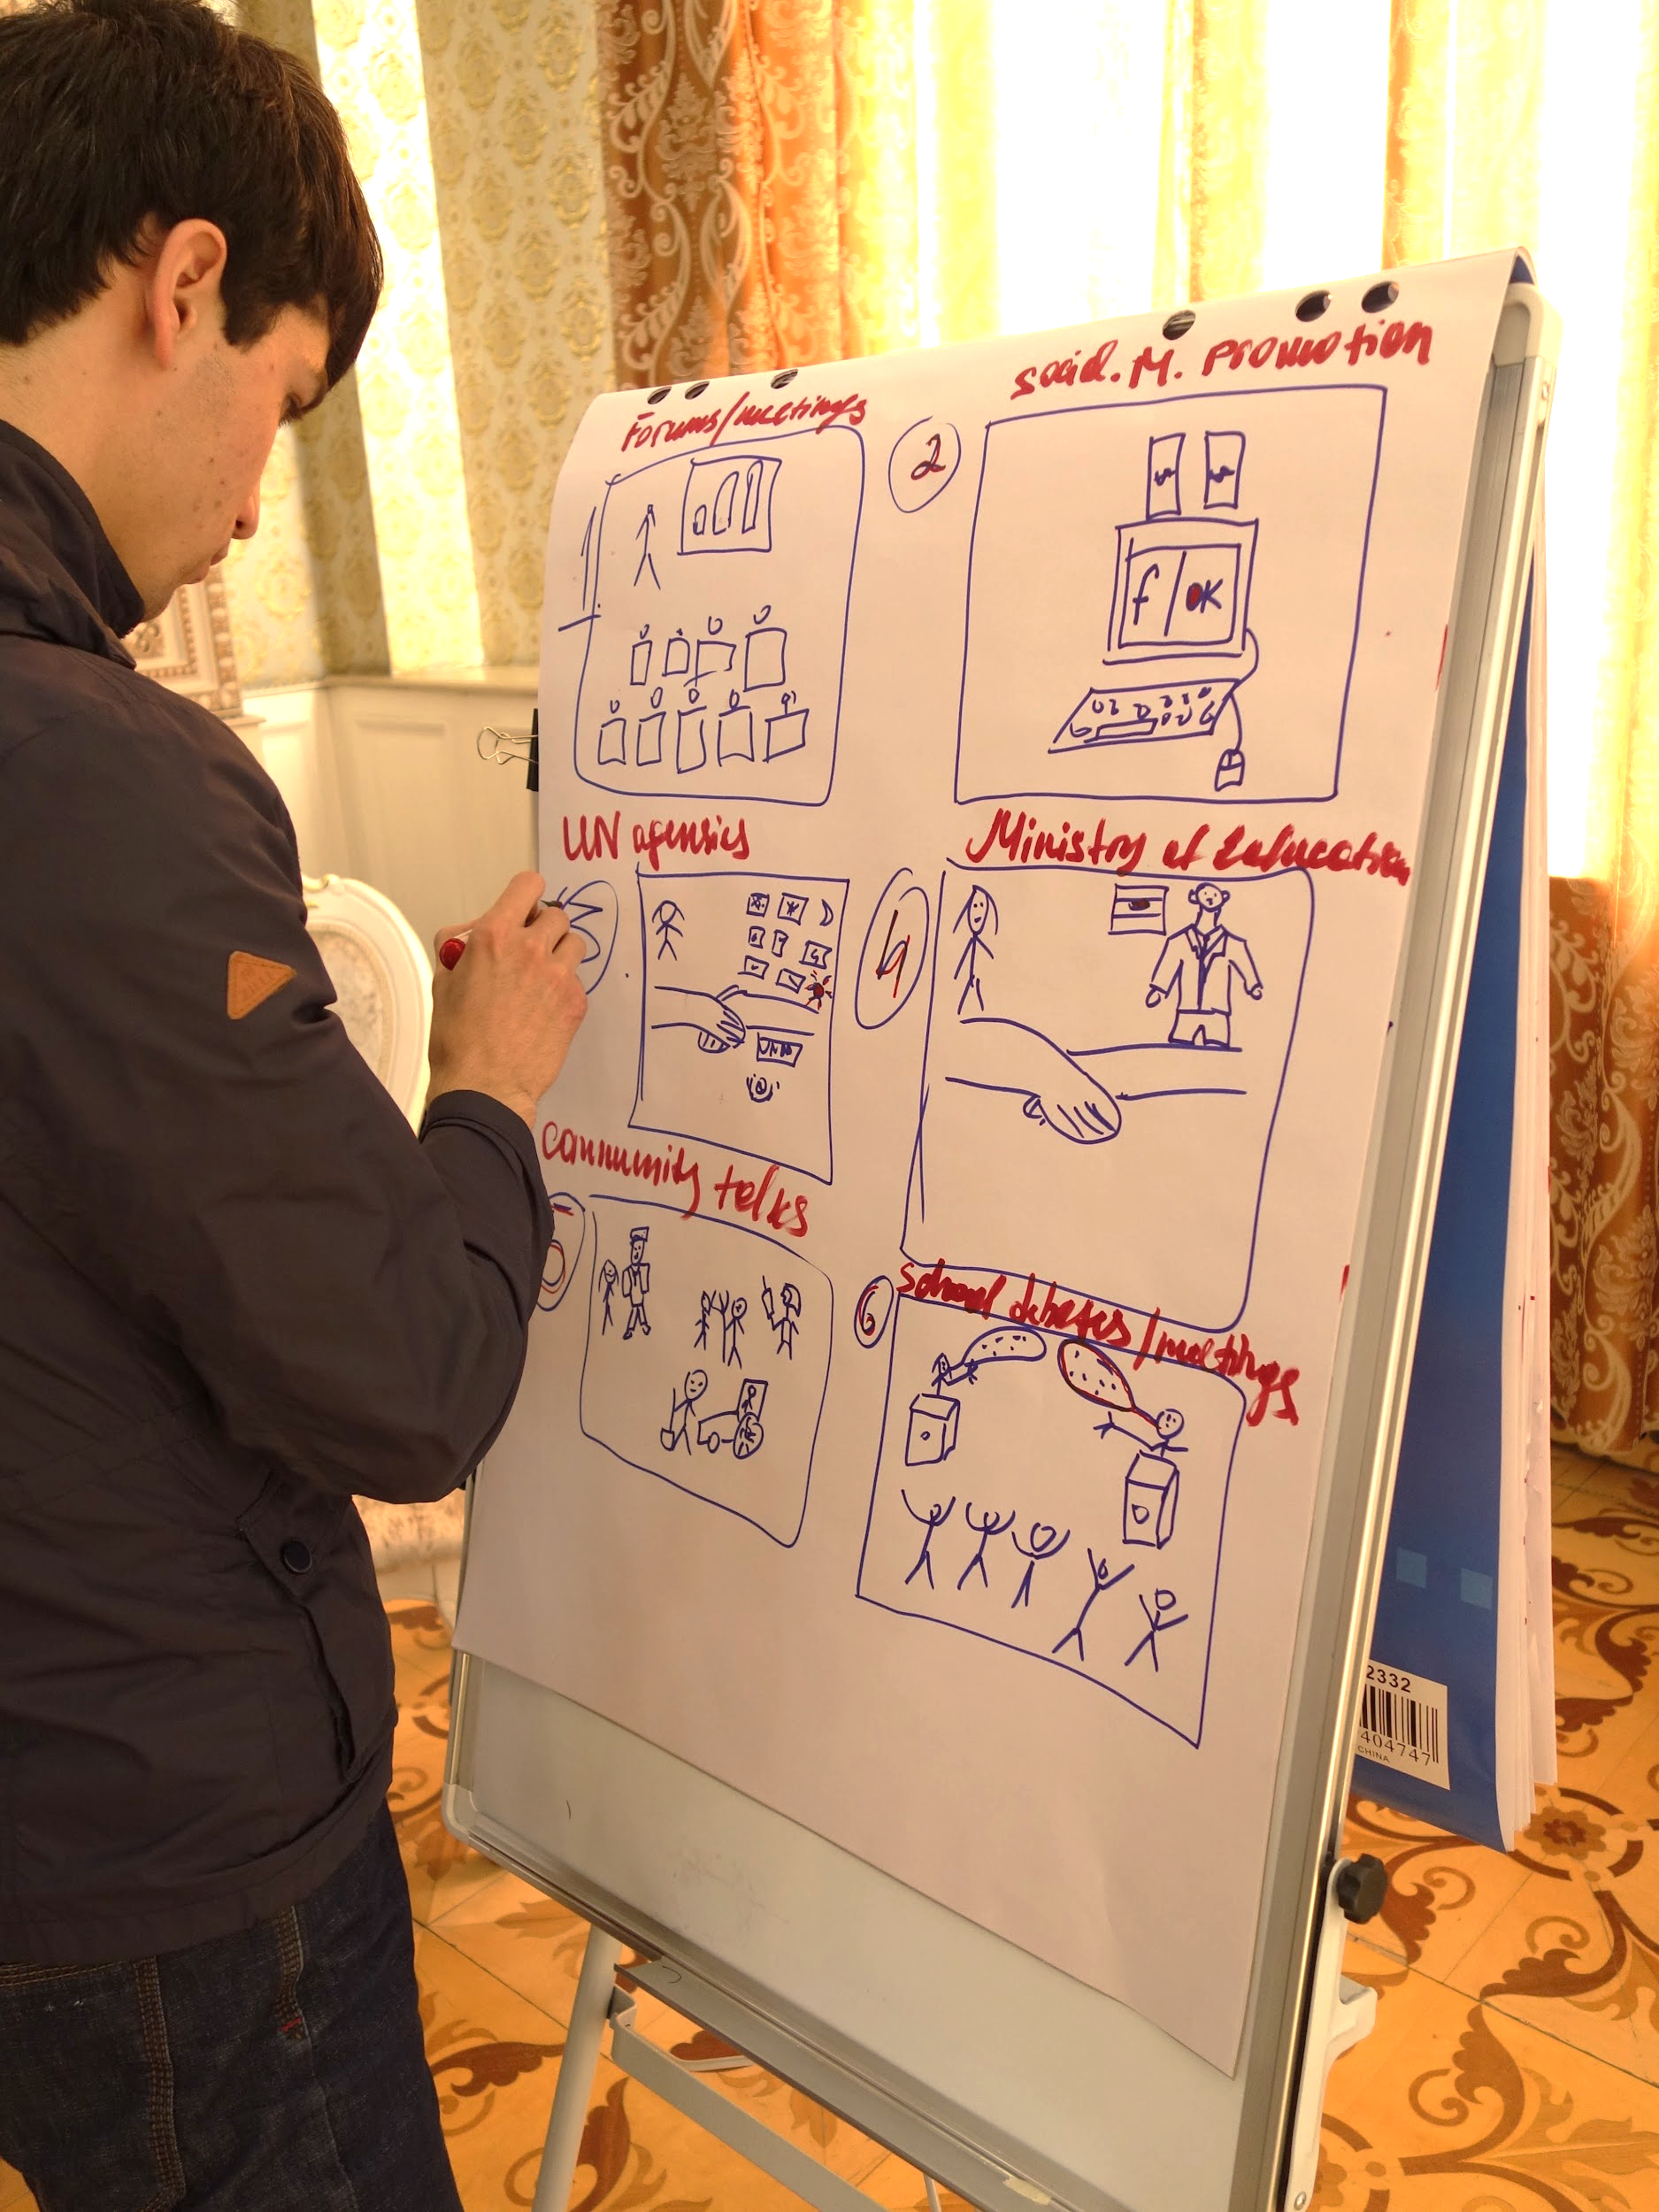 Forums/meetings
1
social. M. promotion
2
f/OK
UN agensies
3
Ministry of Education
4
community talks
5
school debates/meetings
6
2332
404747
CHINA